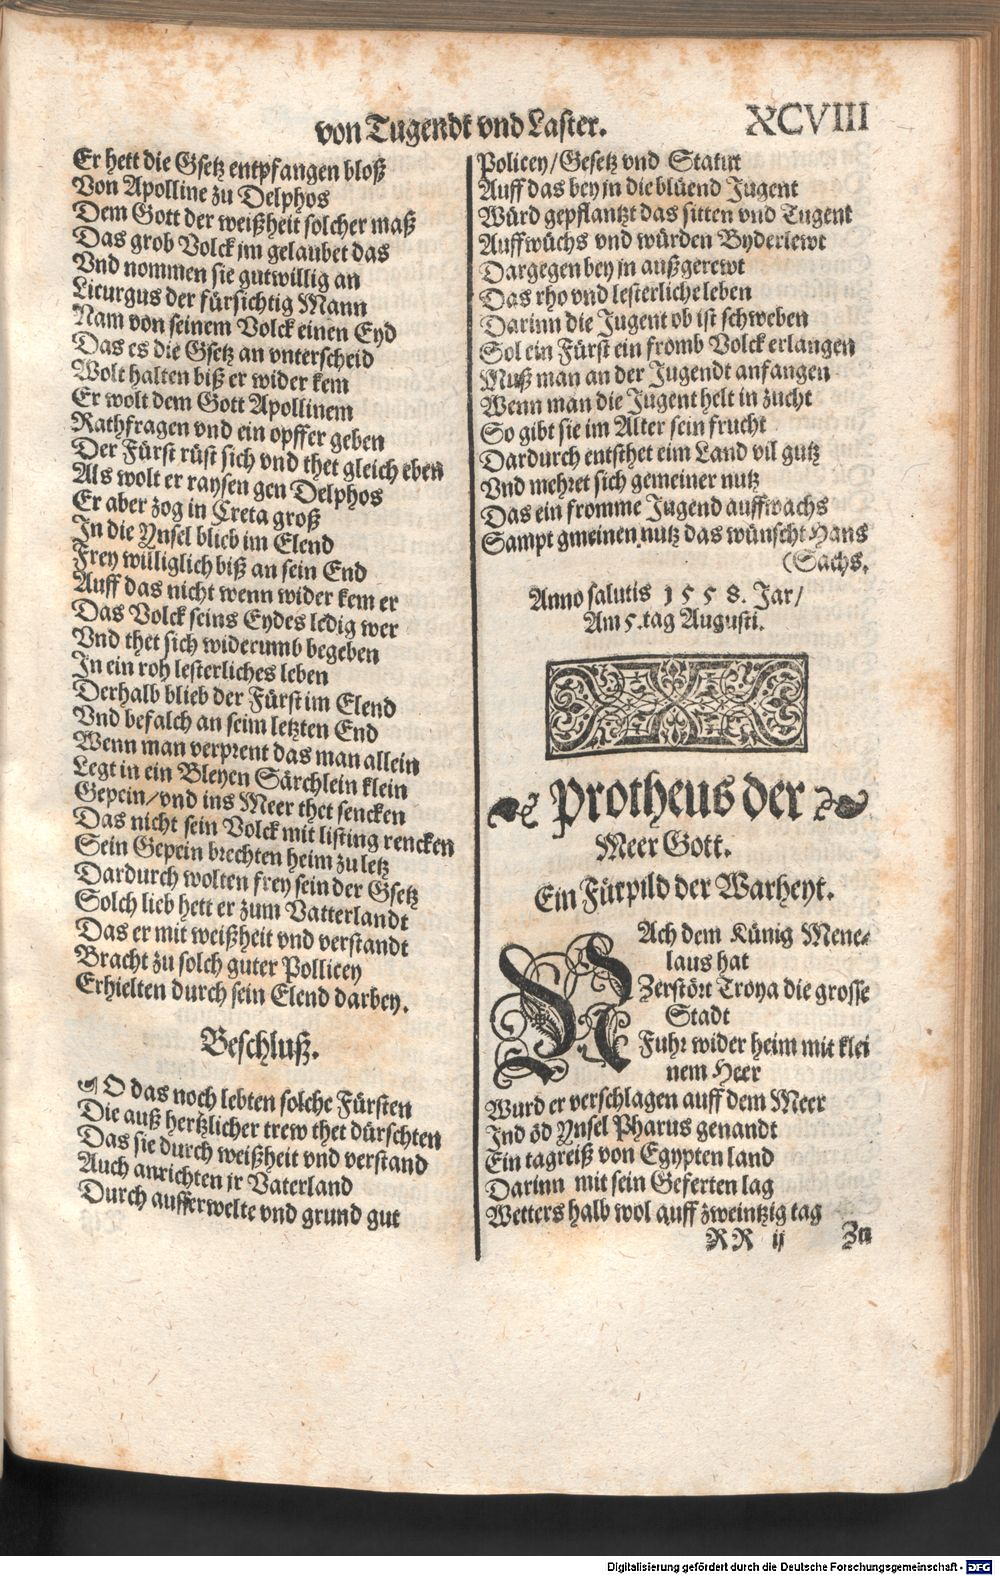 von Tugendt vnd Laster. XCVIII
Er hett die Gsetz entpfangen bloß
Von Apolline zu Delphos
Dem Gott der weißheit solcher maß
Das grob Volck jm gelaubet das
Vnd nommen sie gutwillig an
Licurgus der fürsichtig Mann
Nam von seinem Volck einen Eyd
Das es die Gsetz an vnterscheid
Wolt halten biß er wider kem
Er wolt dem Gott Apollinem
Rathfragen vnd ein opffer geben
Der Fürst rüst sich vnd thet gleich eben
Als wolt er raysen gen Delphos
Er aber zog in Creta groß
In die Ynsel blieb im Elend
Frey williglich biß an sein End
Auff das nicht wenn wider kem er
Das Volck seins Eydes ledig wer
Vnd thet sich widerumb begeben
In ein roh lesterliches leben
Derhalb blieb der Fürst im Elend
Vnd befalch an seim letzten End
Wenn man verprent das man allein
Legt in ein Bleyen Särchlein klein
Gepein/vnd ins Meer thet sencken
Das nicht sein Volck mit listing rencken
Sein Gepein brechten heim zu letz
Dardurch wolten frey sein der Gsetz
Solch lieb hett er zum Vatterlandt
Das er mit weißheit vnd verstandt
Bracht zu solch guter Pollicey
Erhielten durch sein Elend darbey.
Beschluß.
O das noch lebten solche Fürsten
Die auß hertzlicher trew thet dürschten
Das sie durch weißheit vnd verstand
Auch anrichten ir Vaterland
Durch aufferwelte vnd grund gut
Policey/Gesetz vnd Statut
Auff das bey jn die blüend Jugent
Würd gepflantzt das sitten vnd Tugent
Auffwüchs vnd würden Byderlewt
Dargegen bey jn außgerewt
Das rho vnd lesterliche leben
Darinn die Jugent ob ist schweben
Sol ein Fürst ein fromb Volck erlangen
Muß man an der Jugendt anfangen
Wenn man die Jugent helt in zucht
So gibt sie im Alter sein frucht
Dardurch entsthet eim Land vil gutz
Vnd mehret sich gemeiner nutz
Das ein fromme Jugend auffwachs
Sampt gmeinen nutz das wünscht Hans
(Sachs.
Anno salutis 1558. Jar/
Am 5.tag Augusti.
Protheus der
Meer Gott.
Ein Fürpild der Warheyt.
NAch dem Künig Mene-
laus hat
Zerstört Troya die grosse
Stadt
Fuhr wider heim mit klei
nem Heer
Wurd er verschlagen auff dem Meer
Ind öd Ynsel Pharus genandt
Ein tagreiß von Egypten land
Darinn mit sein Geferten lag
Wetters halb wol auff zweintzig tag
RR ij Zu
Digitalisierung gefördert durch die Deutsche Forschungsgemeinschaft - DFG